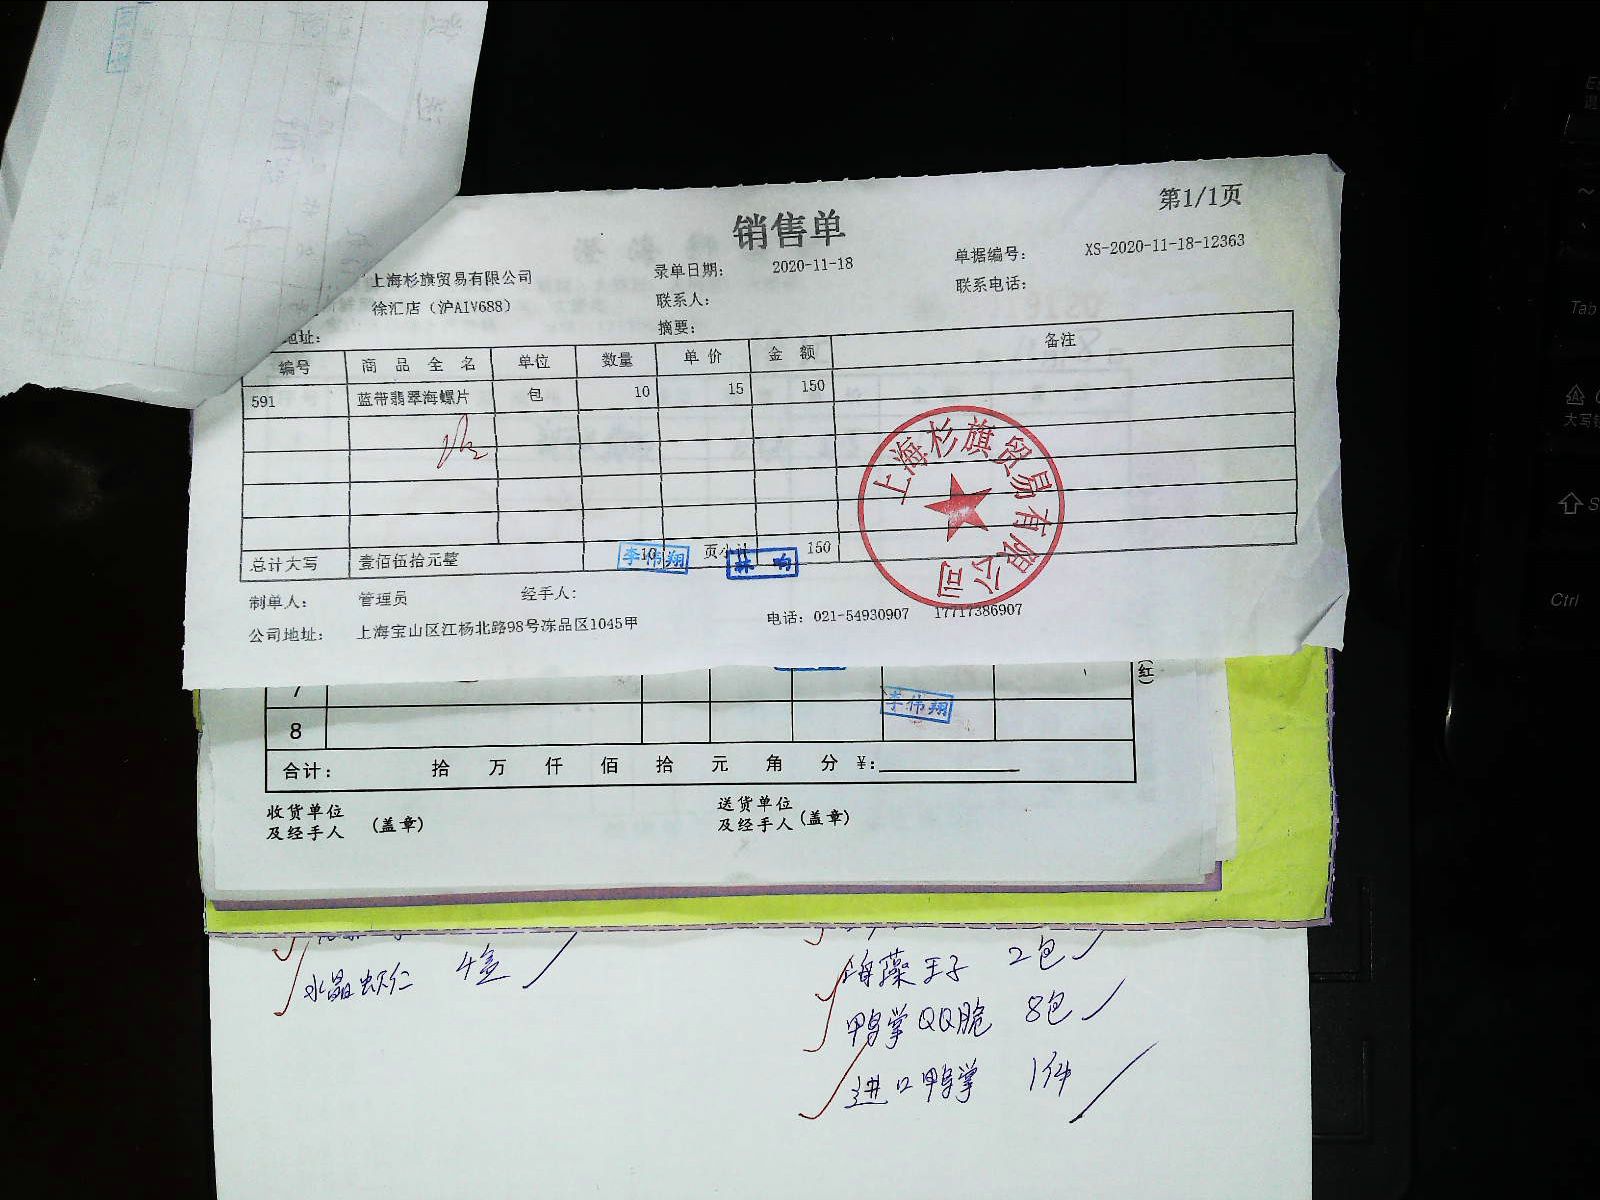 第1/1页
销售单
上海杉旗贸易有限公司 录单日期： 2020-11-18 单据编号： XS-2020-11-18-12363
徐汇店（沪AIV688） 联系人： 联系电话：
地址： 摘要：
编号 商品全名 单位 数量 单价 金额 备注
591 蓝带翡翠海螺片 包 10 15 150
总计大写 壹佰伍拾元整 10 页小计 150
李伟翔
林昀
上海杉旗贸易有限公司
制单人： 管理员 经手人：
公司地址： 上海宝山区江杨北路98号冻品区1045甲 电话：021-54930907 17717386907
7
(红)
李伟翔
8
合计： 拾 万 仟 佰 拾 元 角 分 ¥:
收货单位及经手人 (盖章) 送货单位及经手人 (盖章)
水晶虾仁 4盒
海藻王子 2包
鸭掌QQ脆 8包
进口鸭掌 1件
Tab
Ctrl